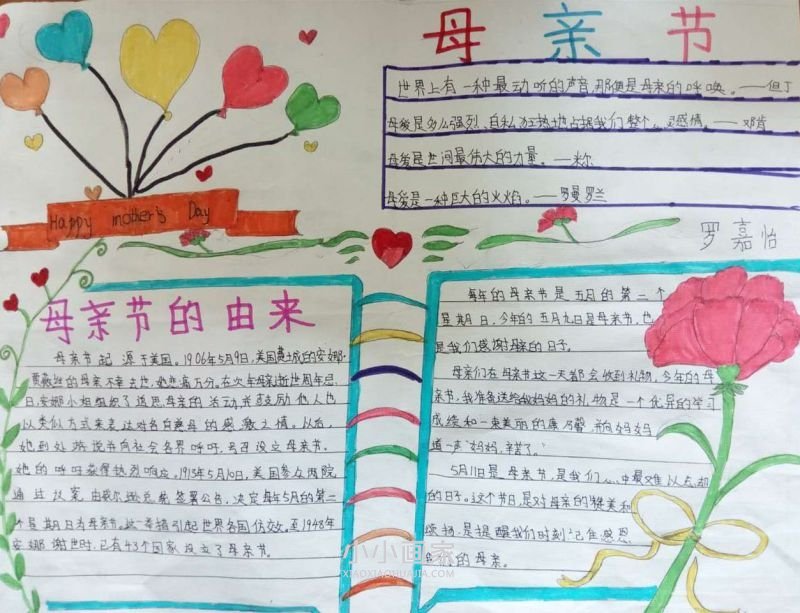 母亲节
世界上有一种最动听的声音,那便是母亲的呼唤。——但丁
母爱是多么强烈、自私、狂热地占据我们整个心灵感情。——邓肯
母爱是世间最伟大的力量。——米尔
母爱是一种巨大的火焰。——罗曼罗兰
Happy mother's Day
罗嘉怡
母亲节的由来
母亲节起源于美国。1906年5月9日,美国费城的安娜·
贾薇丝的母亲不幸去世,她悲痛万分。在次年母亲逝世周年忌
日,安娜小姐组织了追思母亲的活动,并鼓励他人也
以类似方式来表达对各自慈母的感激之情。此后,
她到处游说并向社会各界呼吁,号召设立母亲节。
她的呼吁获得热烈响应。1913年5月10日,美国参众两院
通过议案,由威尔逊总统签署公告,决定每年5月的第二
个星期日为母亲节。这一举措引起世界各国仿效。至1948年
安娜谢世时,已有43个国家设立了母亲节。
每年的母亲节是五月的第二个
星期日,今年的五月九日是母亲节,也
是我们感谢母亲的日子。
母亲们在母亲节这一天都会收到礼物,今年的母
亲节,我准备送给我妈妈的礼物是一个优异的学习
成绩和一束美丽的康乃馨,并向妈妈
道一声"妈妈,辛苦了。"
5月11日是母亲节,是我们心中最难以忘却
的日子。这个节日是对母亲的赞美和
颂扬,是提醒我们时刻记住感恩
的母亲。
小小画家
XIAOXIAOHUAJIA.COM